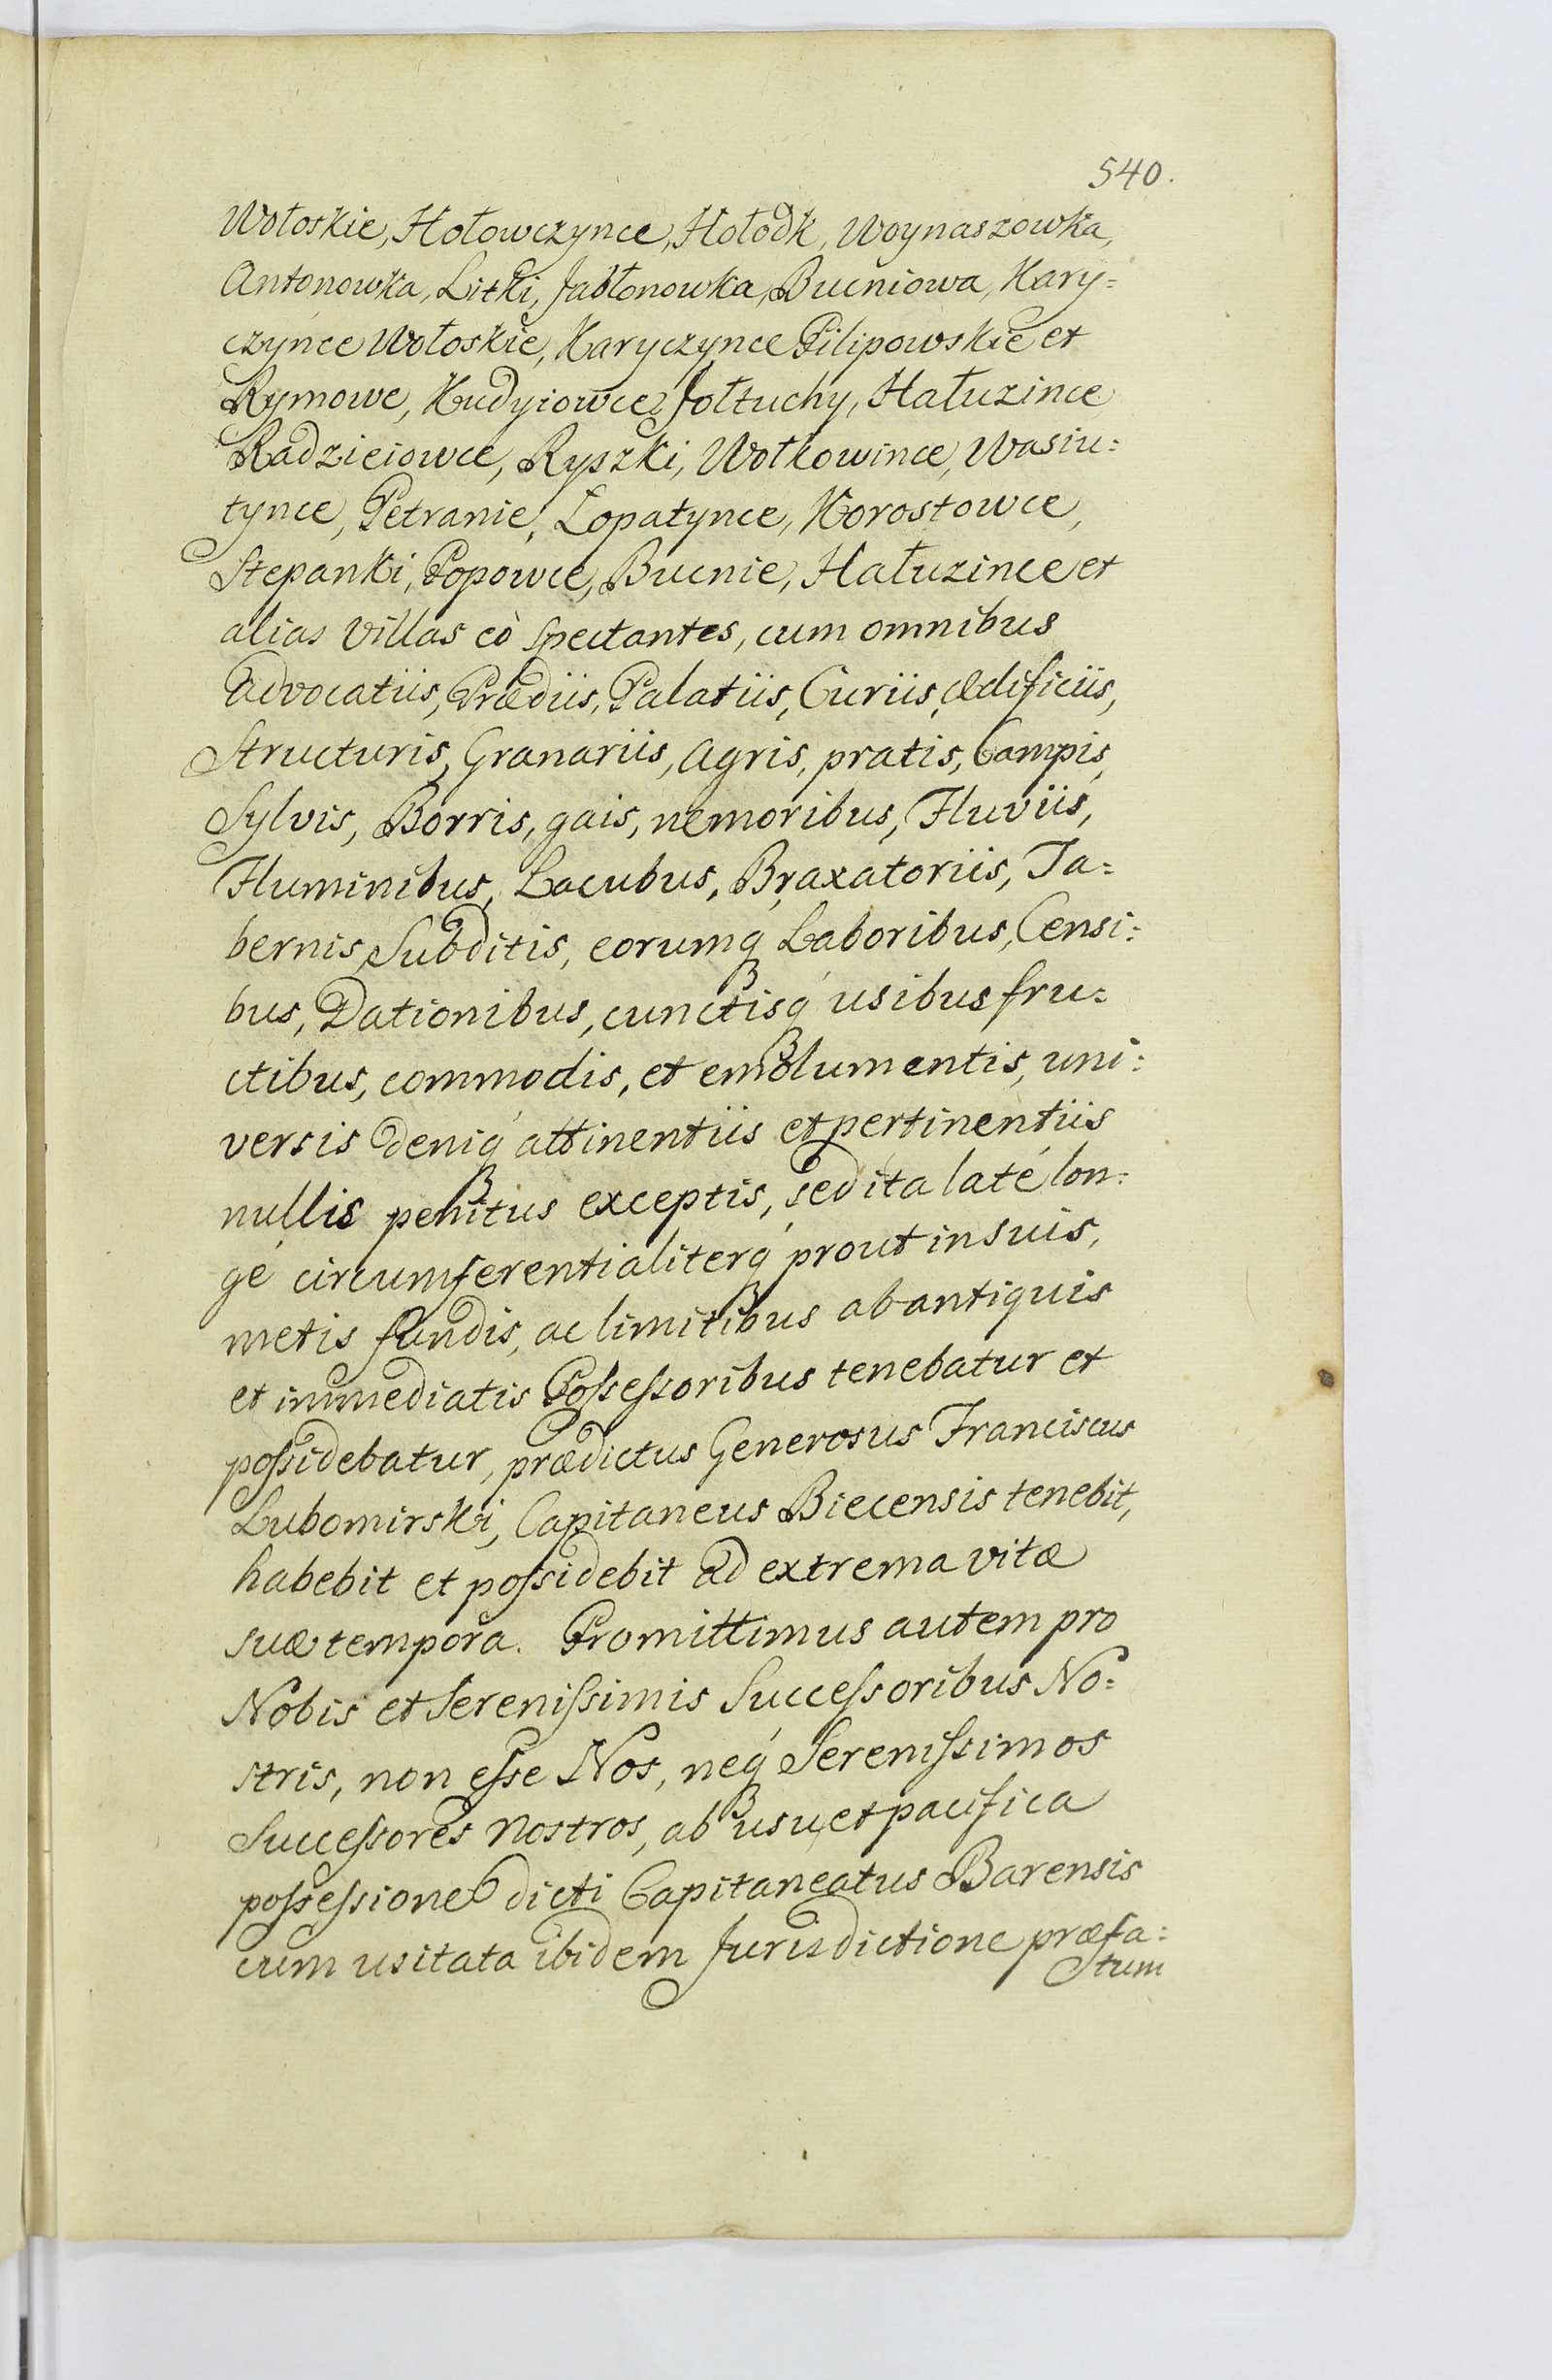 540.
Wołoskie, Hołowczynce, Hołodk, Woynaszowka,
Antonowka, Litki, Jabłonowka, Bucniowa, Kary=
czynce Wołoskie, Karyczynce Pilipowskie et
Rymowe, Kudyiowce, Jołtuchy, Hałuzince
Radzieiowce, Ryszki, Wołkowince, Wasiu=
tynce, Petranie, Łopatynce, Korostowce,
Stepanki, Popowce, Bucnie, Hałuzince et
alias Villas eò spectantes, cum omnibus
Advocatiis, Prædiis, Palatiis, Curiis, ædificiis,
Structuris, Granariis, agris, pratis, Campis,
Sylvis, Borris, gais, nemoribus, Fluviis,
Fluminibus, Lacubus, Braxatoriis, Ta=
bernis, Subditis, eorumq́ Laboribus, Censi=
bus, Dationibus, cunctisq́ usibus fru=
ctibus, commodis, et emolumentis, uni=
versis deniq́ attinentiis et pertinentiis
nullis penitus exceptis, sed ita laté lon=
gé circumferentialiterq́ prout in suis,
metis fundis, ac limitibus ab antiquis
et immediatis Possessoribus tenebatur et
possidebatur, prædictus Generosus Franciscus
Lubomirski, Capitaneus Biecensis tenebit,
habebit et possidebit ad extrema vitæ
suæ tempora. Promittimus autem pro
Nobis et Serenissimis Successoribus No=
stris, non esse Nos, neq́ Serenissimos
Successores nostros, ab usu et pacifica
possessione dicti Capitaneatus Barensis
cum usitata ibidem Jurisdictione præfa=
tum